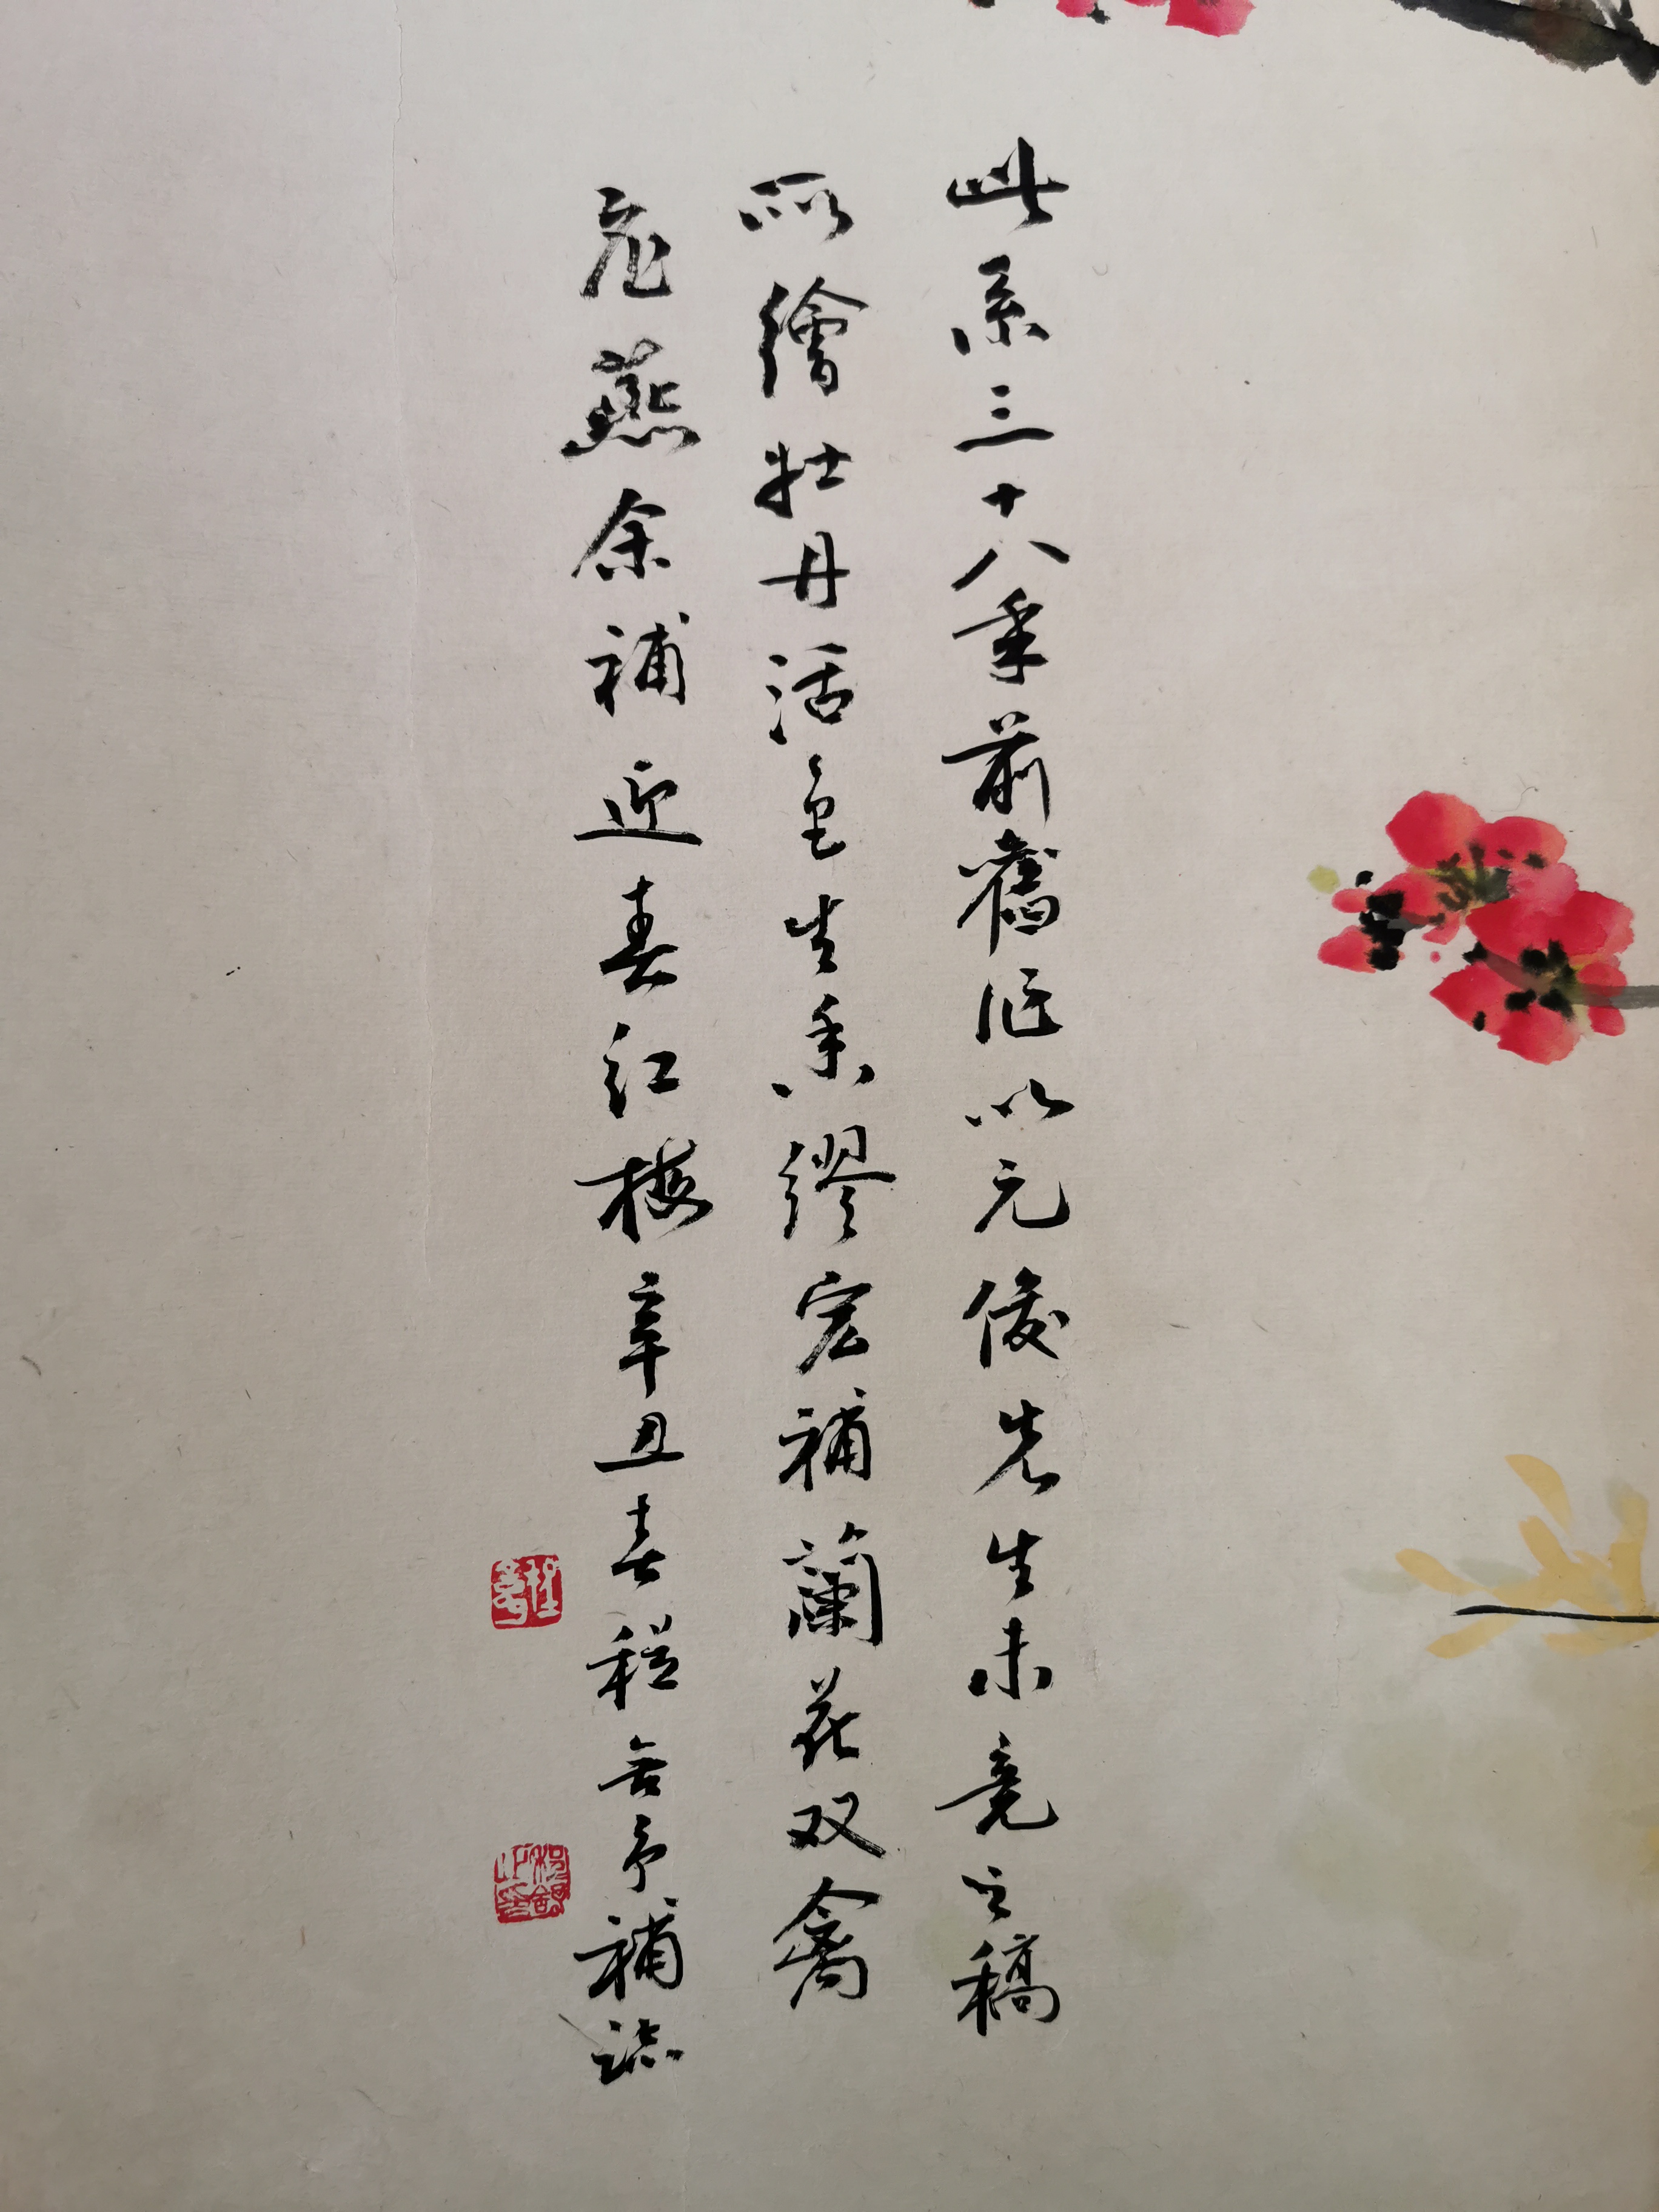 此系三十八年前舊作以元俊先生未竟之稿
所繪牡丹活色生香繆宏補蘭花双禽
燕余補迎春红梅辛丑春程
予補誌